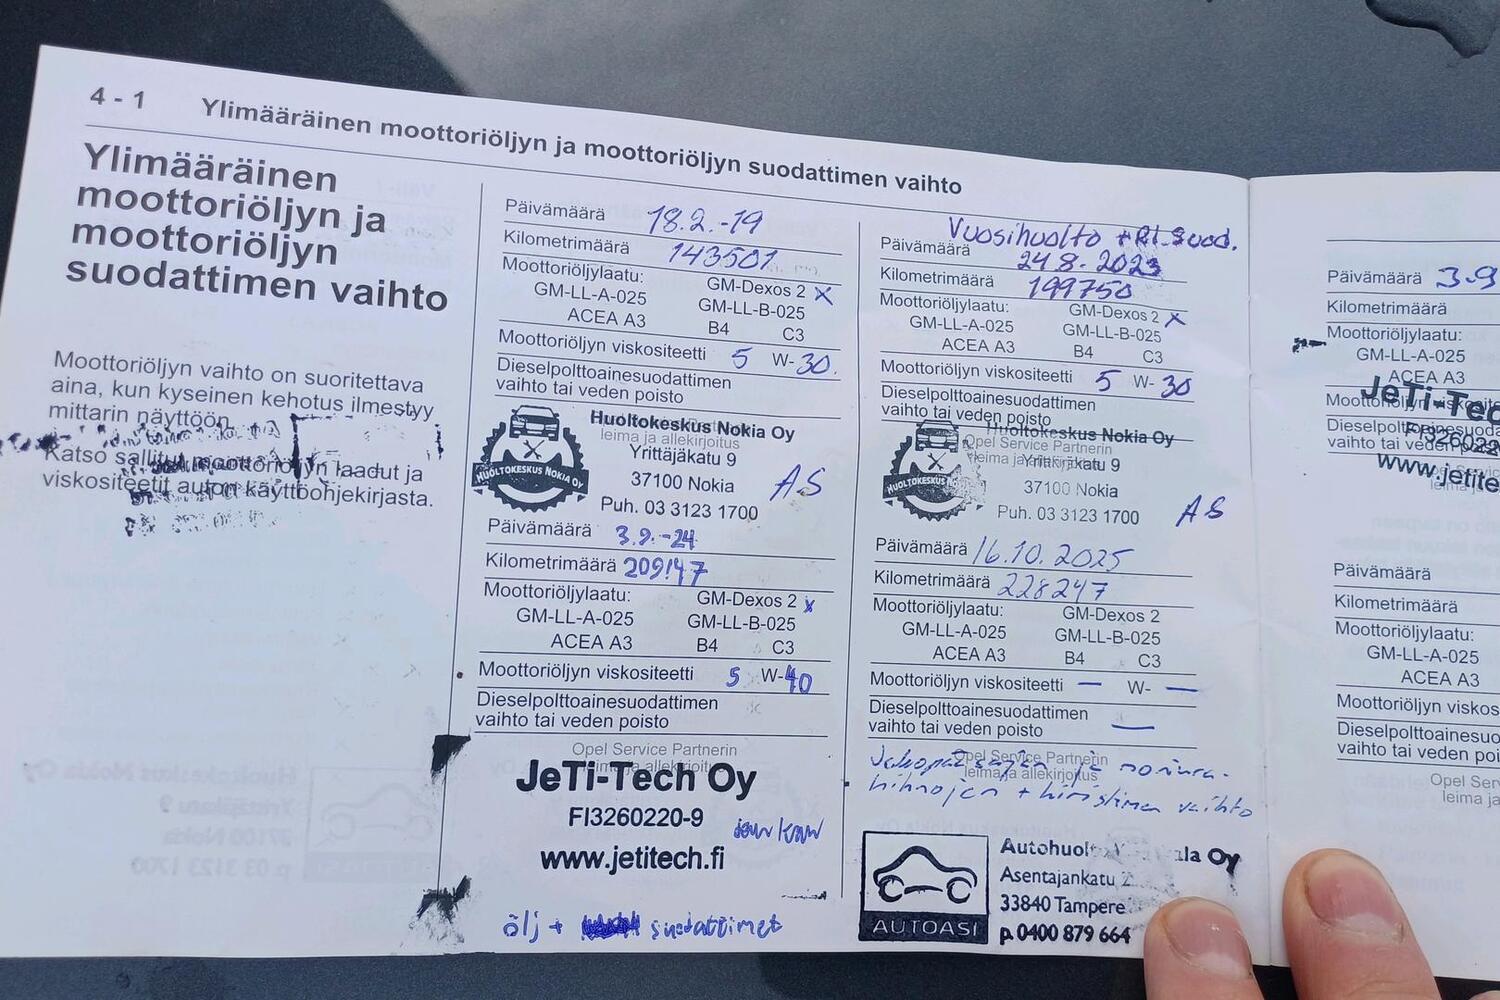 4 - 1 Ylimääräinen moottoriöljyn ja moottoriöljyn suodattimen vaihto
Ylimääräinen
moottoriöljyn ja
moottoriöljyn
suodattimen vaihto
Moottoriöljyn vaihto on suoritettava
aina, kun kyseinen kehotus ilmestyy
mittarin näyttöön.
Katso sallitut moottoriöljyn laadut ja
viskositeetit auton käyttöohjekirjasta.
Päivämäärä 18.2.-19
Kilometrimäärä 143501
Moottoriöljylaatu: GM-Dexos 2 x
GM-LL-A-025 GM-LL-B-025
ACEA A3 B4 C3
Moottoriöljyn viskositeetti 5 W-30.
Dieselpolttoainesuodattimen
vaihto tai veden poisto
Huoltokeskus Nokia Oy
leima ja allekirjoitus
Yrittäjäkatu 9
37100 Nokia
Puh. 03 3123 1700
HUOLTOKESKUS NOKIA OY
AS
Päivämäärä 3.9.-24
Kilometrimäärä 209147
Moottoriöljylaatu: GM-Dexos 2 x
GM-LL-A-025 GM-LL-B-025
ACEA A3 B4 C3
Moottoriöljyn viskositeetti 5 W-40
Dieselpolttoainesuodattimen
vaihto tai veden poisto
Opel Service Partnerin
leima ja allekirjoitus
JeTi-Tech Oy
FI3260220-9
www.jetitech.fi
ölj + suodattimet
Vuosihuolto + RI.Suod.
Päivämäärä 24.8.2023
Kilometrimäärä 199750
Moottoriöljylaatu: GM-Dexos 2 x
GM-LL-A-025 GM-LL-B-025
ACEA A3 B4 C3
Moottoriöljyn viskositeetti 5 W-30
Dieselpolttoainesuodattimen
vaihto tai veden poisto
Huoltokeskus Nokia Oy
Opel Service Partnerin
leima ja allekirjoitus
Yrittäjäkatu 9
37100 Nokia
Puh. 03 3123 1700
HUOLTOKESKUS
AS
Päivämäärä 16.10.2025
Kilometrimäärä 228247
Moottoriöljylaatu: GM-Dexos 2
GM-LL-A-025 GM-LL-B-025
ACEA A3 B4 C3
Moottoriöljyn viskositeetti — W- —
Dieselpolttoainesuodattimen
vaihto tai veden poisto —
Opel Service Partnerin
leima ja allekirjoitus
Jakopään ja moniura-
hihnojen + kiristimen vaihto
AUTOASI
Autohuol la Oy
Asentajankatu
33840 Tampere
p. 0400 879 664
Päivämäärä 3.9
Kilometrimäärä
Moottoriöljylaatu:
GM-LL-A-025
ACEA A3
JeTi-Tec
FI326022
www.jetite
Päivämäärä
Kilometrimäärä
Moottoriöljylaatu:
GM-LL-A-025
ACEA A3
Moottoriöljyn viskos
Dieselpolttoainesuo
vaihto tai veden poi
Opel Serv
leima ja